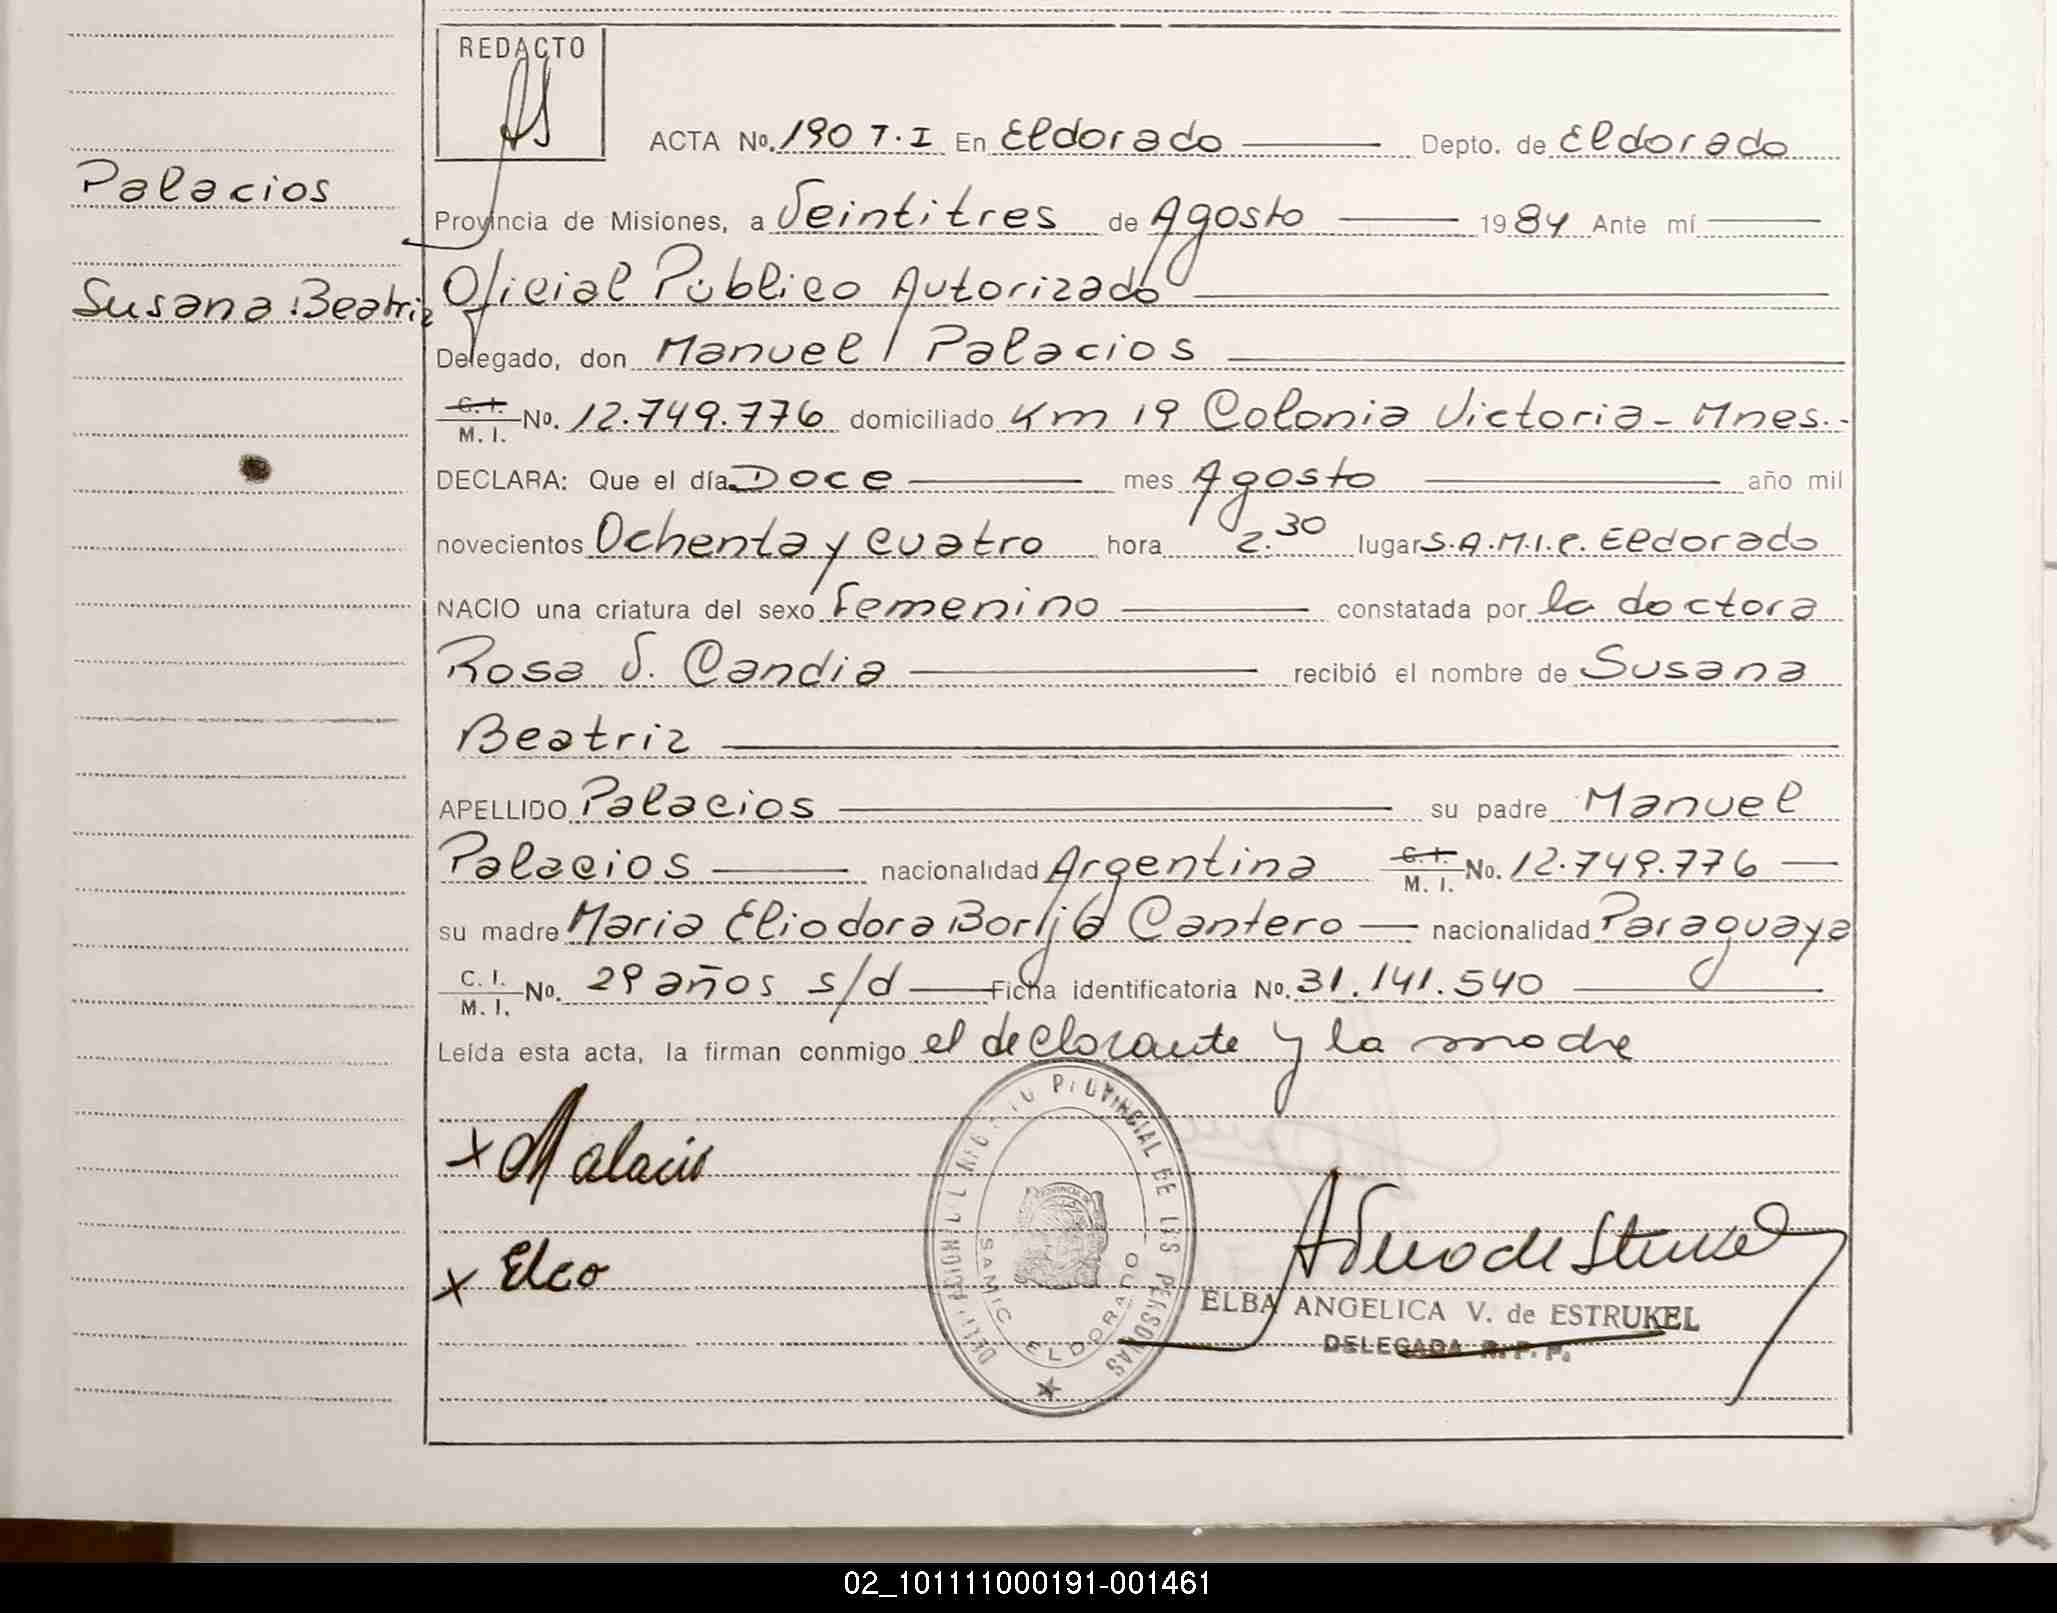 REDACTO
ACTA No. 190 T.I En Eldorado Depto. de Eldorado
Palacios
Provincia de Misiones, a Veintitres de Agosto 1984 Ante mí
Susana Beatriz
Oficial Público Autorizado
Delegado, don Manuel Palacios
C. I.
M. I. No. 12.749.776 domiciliado Km 19 Colonia Victoria - Mnes.-
DECLARA: Que el día Doce mes Agosto año mil
novecientos Ochenta y cuatro hora 2.30 lugar S.A.M.I.C. Eldorado
NACIO una criatura del sexo femenino constatada por la doctora
Rosa V. Candia recibió el nombre de Susana
Beatriz
APELLIDO Palacios su padre Manuel
Palacios nacionalidad Argentina C. I.
M. I. No. 12.749.776
su madre Maria Eliodora Borja Cantero nacionalidad Paraguaya
C. I.
M. I. No. 29 años s/d Ficha identificatoria No. 31.141.540
Leída esta acta, la firman conmigo el declarante y la madre
x Palacio
x Elco
DELEGACION REGISTRO PROVINCIAL DE LAS PERSONAS
SAMIC ELDORADO
ELBA ANGELICA V. de ESTRUKEL
DELEGADA R. P. P.
02_101111000191-001461